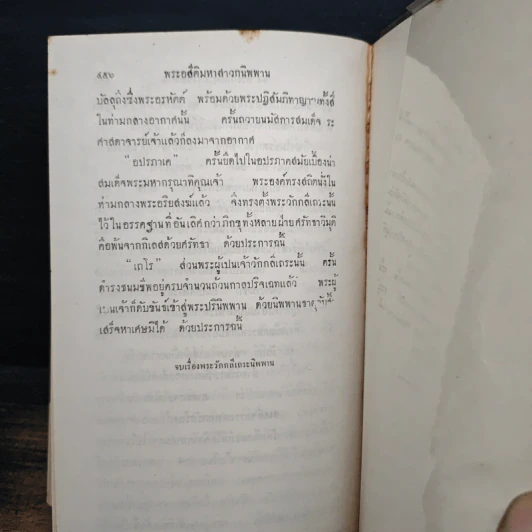 ๕๕๖ พระอสีติมหาสาวกนิพพาน
บัลลุถึงซึ่งพระอรหัตต์ พร้อมด้วยพระปฏิสัมภิทาญาณทั้งสี่
ในท่ามกลางอากาศนั้น ครั้นถวายนมัสการสมเด็จ ระ
ศาสดาจารย์เจ้าแล้วก็ลงมาจากอากาศ
"อปรภาเค" ครั้นยืดไปในอปรภาคสมัยเบื้องน่า
สมเด็จพระมหากรุณาทิคุณเจ้า พระองค์ทรงสถิตนั่งใน
ท่ามกลางพระอริยสงฆ์แล้ว จึงทรงตั้งพระวักกลีเถระนั้น
ไว้ในอรรคฐานที่อันเลิศกว่าภิกษุทั้งหลายฝ่ายศรัทธาวิมุติ
คือพ้นจากกิเลสด้วยศรัทธา ด้วยประการฉนี้
"เถโร" ส่วนพระผู้เปนเจ้าวักกลีเถระนั้น ครั้น
ดำรงชนมชีพอยู่ครบจำนวนถ้วนกาลปริจเฉทแล้ว พระผู้
เปนเจ้าก็ดับขันธ์เข้าสู่พระปรินิพพาน ด้วยนิพพานธาตุอัน
เสร็จหาเศษมิได้ ด้วยประการฉนี้
จบเรื่องพระวักกลีเถระนิพพาน